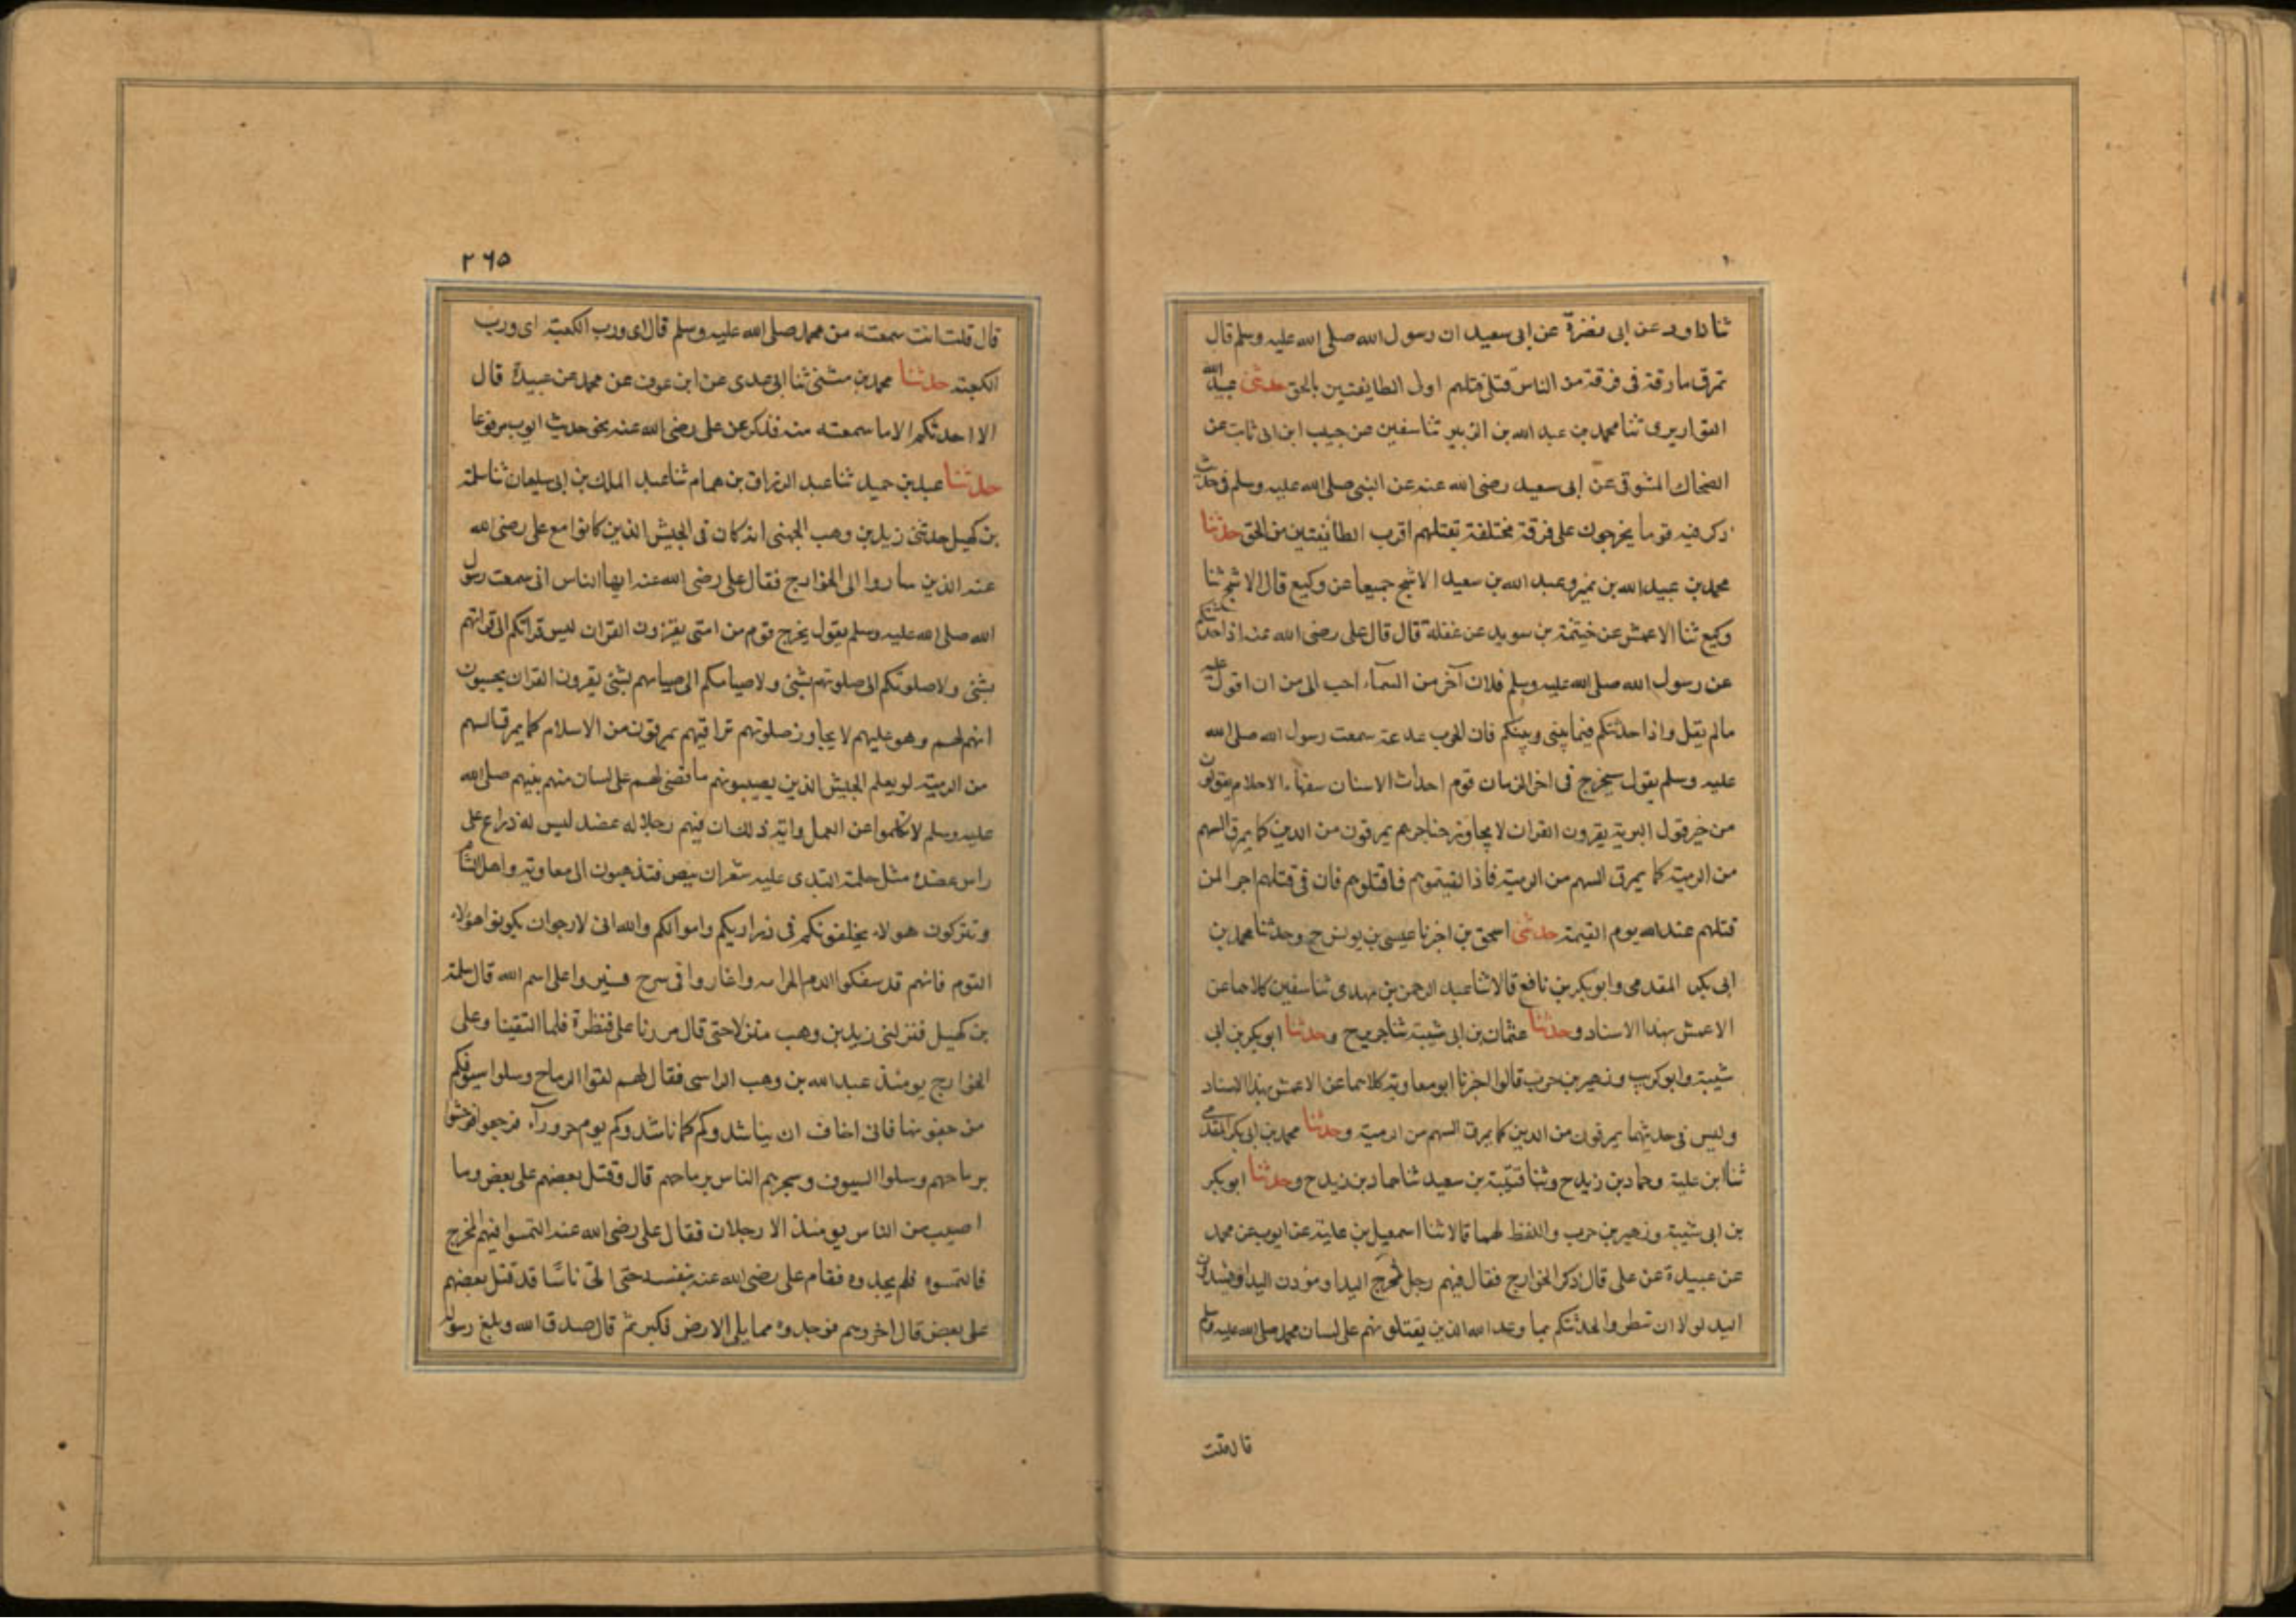 ثنا داود عن ابى نضرة عن ابى سعيد ان رسول الله صلى الله عليه وسلم قال
تمرق مارقة فى فرقة من الناس قتلى قتلهم اولى الطايفتين بالحق حدثنى عبيدالله
القواريرى ثنا محمد بن عبد الله بن الزبير ثنا سفين عن حبيب ابن ابى ثابت عن
الضحاك المشرقى عن ابى سعيد رضى الله عنه عن النبى صلى الله عليه وسلم فى حديث
ذكر فيه قوما يخرجون على فرقة مختلفة تقتلهم اقرب الطائفتين من الحق حدثنا
محمد بن عبيد الله بن نمير وعبد الله بن سعيد الاشج جميعا عن وكيع قال الاشج ثنا
وكيع ثنا الاعمش عن خيثمة بن سويد عن غفلة قال قال على رضى الله عنه اذا حدثتكم
عن رسول الله صلى الله عليه وسلم فلان آخر من السمآء احب الى من ان اقول عليه
مالم يقل واذا حدثتكم فيما بينى وبينكم فان الحرب خدعة سمعت رسول الله صلى الله
عليه وسلم يقول سيخرج فى اخر الزمان قوم احداث الاسنان سفهاء الاحلام يقولون
من خير قول البرية يقرون القران لا يجاوز حناجرهم يمرقون من الدين كما يمرق السهم
من الرمية كما يمرق السهم من الرمية فاذا لقيتموهم فاقتلوهم فان فى قتلهم اجرا لمن
قتلهم عند الله يوم القيمة حدثنى اسحق بن اخرنا عيسى بن يونس ح وحدثنا محمد بن
ابى بكر المقدمى وابو بكر بن نافع قالا ثنا عبد الرحمن بن مهدى ثنا سفين كلاهما عن
الاعمش بهذا الاسناد وحدثنا عثمان بن ابى شيبة ثنا جرير ح وحدثنا ابو بكر بن ابى
شيبة وابو كريب وزهير بن حرب قالوا اخرنا ابو معاوية كلاهما عن الاعمش بهذا الاسناد
وليس فى حديثهما يمرقون من الدين كما يمرق السهم من الرمية وحدثنا محمد بن ابى بكر المقدمى
ثنا ابن علية وحماد بن زيد ح وثنا قتيبة بن سعيد ثنا حماد بن زيد ح وحدثنا ابو بكر
بن ابى شيبة وزهير بن حرب واللفظ لهما قالا ثنا اسمعيل بن علية عن ايوب عن محمد
عن عبيدة عن على قال ذكر الخوارج فقال فيهم رجل مخرج اليد او مودن اليد او مثدون
اليد لولا ان تبطروا لحدثتكم بما وعد الله الذين يقتلونهم على لسان محمد صلى الله عليه وسلم
قال قلت
٢٦٥
قال قلت انت سمعته من محمد صلى الله عليه وسلم قال اى ورب الكعبة اى ورب
الكعبة حدثنا محمد بن مثنى ثنا ابى عدى عن ابن عون عن محمد عن عبيدة قال
الا احدثكم الا ما سمعته منه فذكر عن على رضى الله عنه نحو حديث ايوب مرفوعا
حدثنا عبد بن حميد ثنا عبد الرزاق بن همام ثنا عبد الملك بن ابى سليمان ثنا سلمة
بن كهيل حدثنى زيد بن وهب الجهنى انه كان فى الجيش الذين كانوا مع على رضى الله
عنه الذين ساروا الى الخوارج فقال على رضى الله عنه ايها الناس انى سمعت رسول
الله صلى الله عليه وسلم يقول يخرج قوم من امتى يقرؤن القران ليس قراتكم الى قراتهم
بشئ ولا صلوتكم الى صلوتهم بشئ ولا صيامكم الى صيامهم بشئ يقرون القران يحسبون
انه لهم وهو عليهم لا يجاوز صلوتهم تراقيهم يمرقون من الاسلام كما يمرق السهم
من الرمية لو يعلم الجيش الذين يصيبونهم ما قضى لهم على لسان منهم بنيهم صلى الله
عليه وسلم لاتكلموا عن العمل واية ذلك ان فيهم رجلا له عضد ليس له ذراع على
راس عضده مثل حلمة الثدى عليه شعران بيض فتذهبون الى معاوية واهل الشام
وتتركون هولاء يخلفونكم فى ذراريكم واموالكم والله انى لارجوان يكونوا هولاء
القوم فانهم قد سفكوا الدم الحرام واغاروا فى سرح فسيروا على اسم الله قال سلمة
بن كهيل فنزلنى زيد بن وهب منزلا حتى قال مررنا على قنطرة فلما التقينا وعلى
الخوارج يومئذ عبد الله بن وهب الراسى فقال لهم القوا الرماح وسلوا سيوفكم
من جفونها فانى اخاف ان يناشدوكم كما ناشدوكم يوم حرورآء فرجعوا فوحشوا
برماحهم وسلوا السيوف وسجرهم الناس برماحهم قال وقتل بعضهم على بعض وما
اصيب من الناس يومئذ الا رجلان فقال على رضى الله عنه التمسوا فيهم المخرج
فالتمسوه فلم يجدوه فقام على رضى الله عنه بنفسه حتى اتى ناسا قد قتل بعضهم
على بعض قال اخروهم فوجدوه مما يلى الارض فكبر ثم قال صدق الله وبلغ رسوله